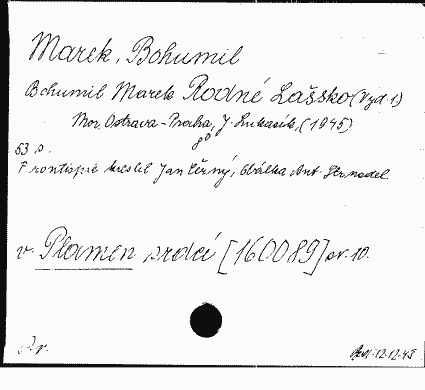 Marek, Bohumil
Bohumil Marek Rodné Lašsko (Vyd. 1)
Mor. Ostrava - Praha, J. Lukasík, (1945)
8°
53 s.
Frontispic kreslil Jan Černý, Obálka Ant. Strnadel
v. Plamen srdcí [160089] sv. 10.
12.12.45